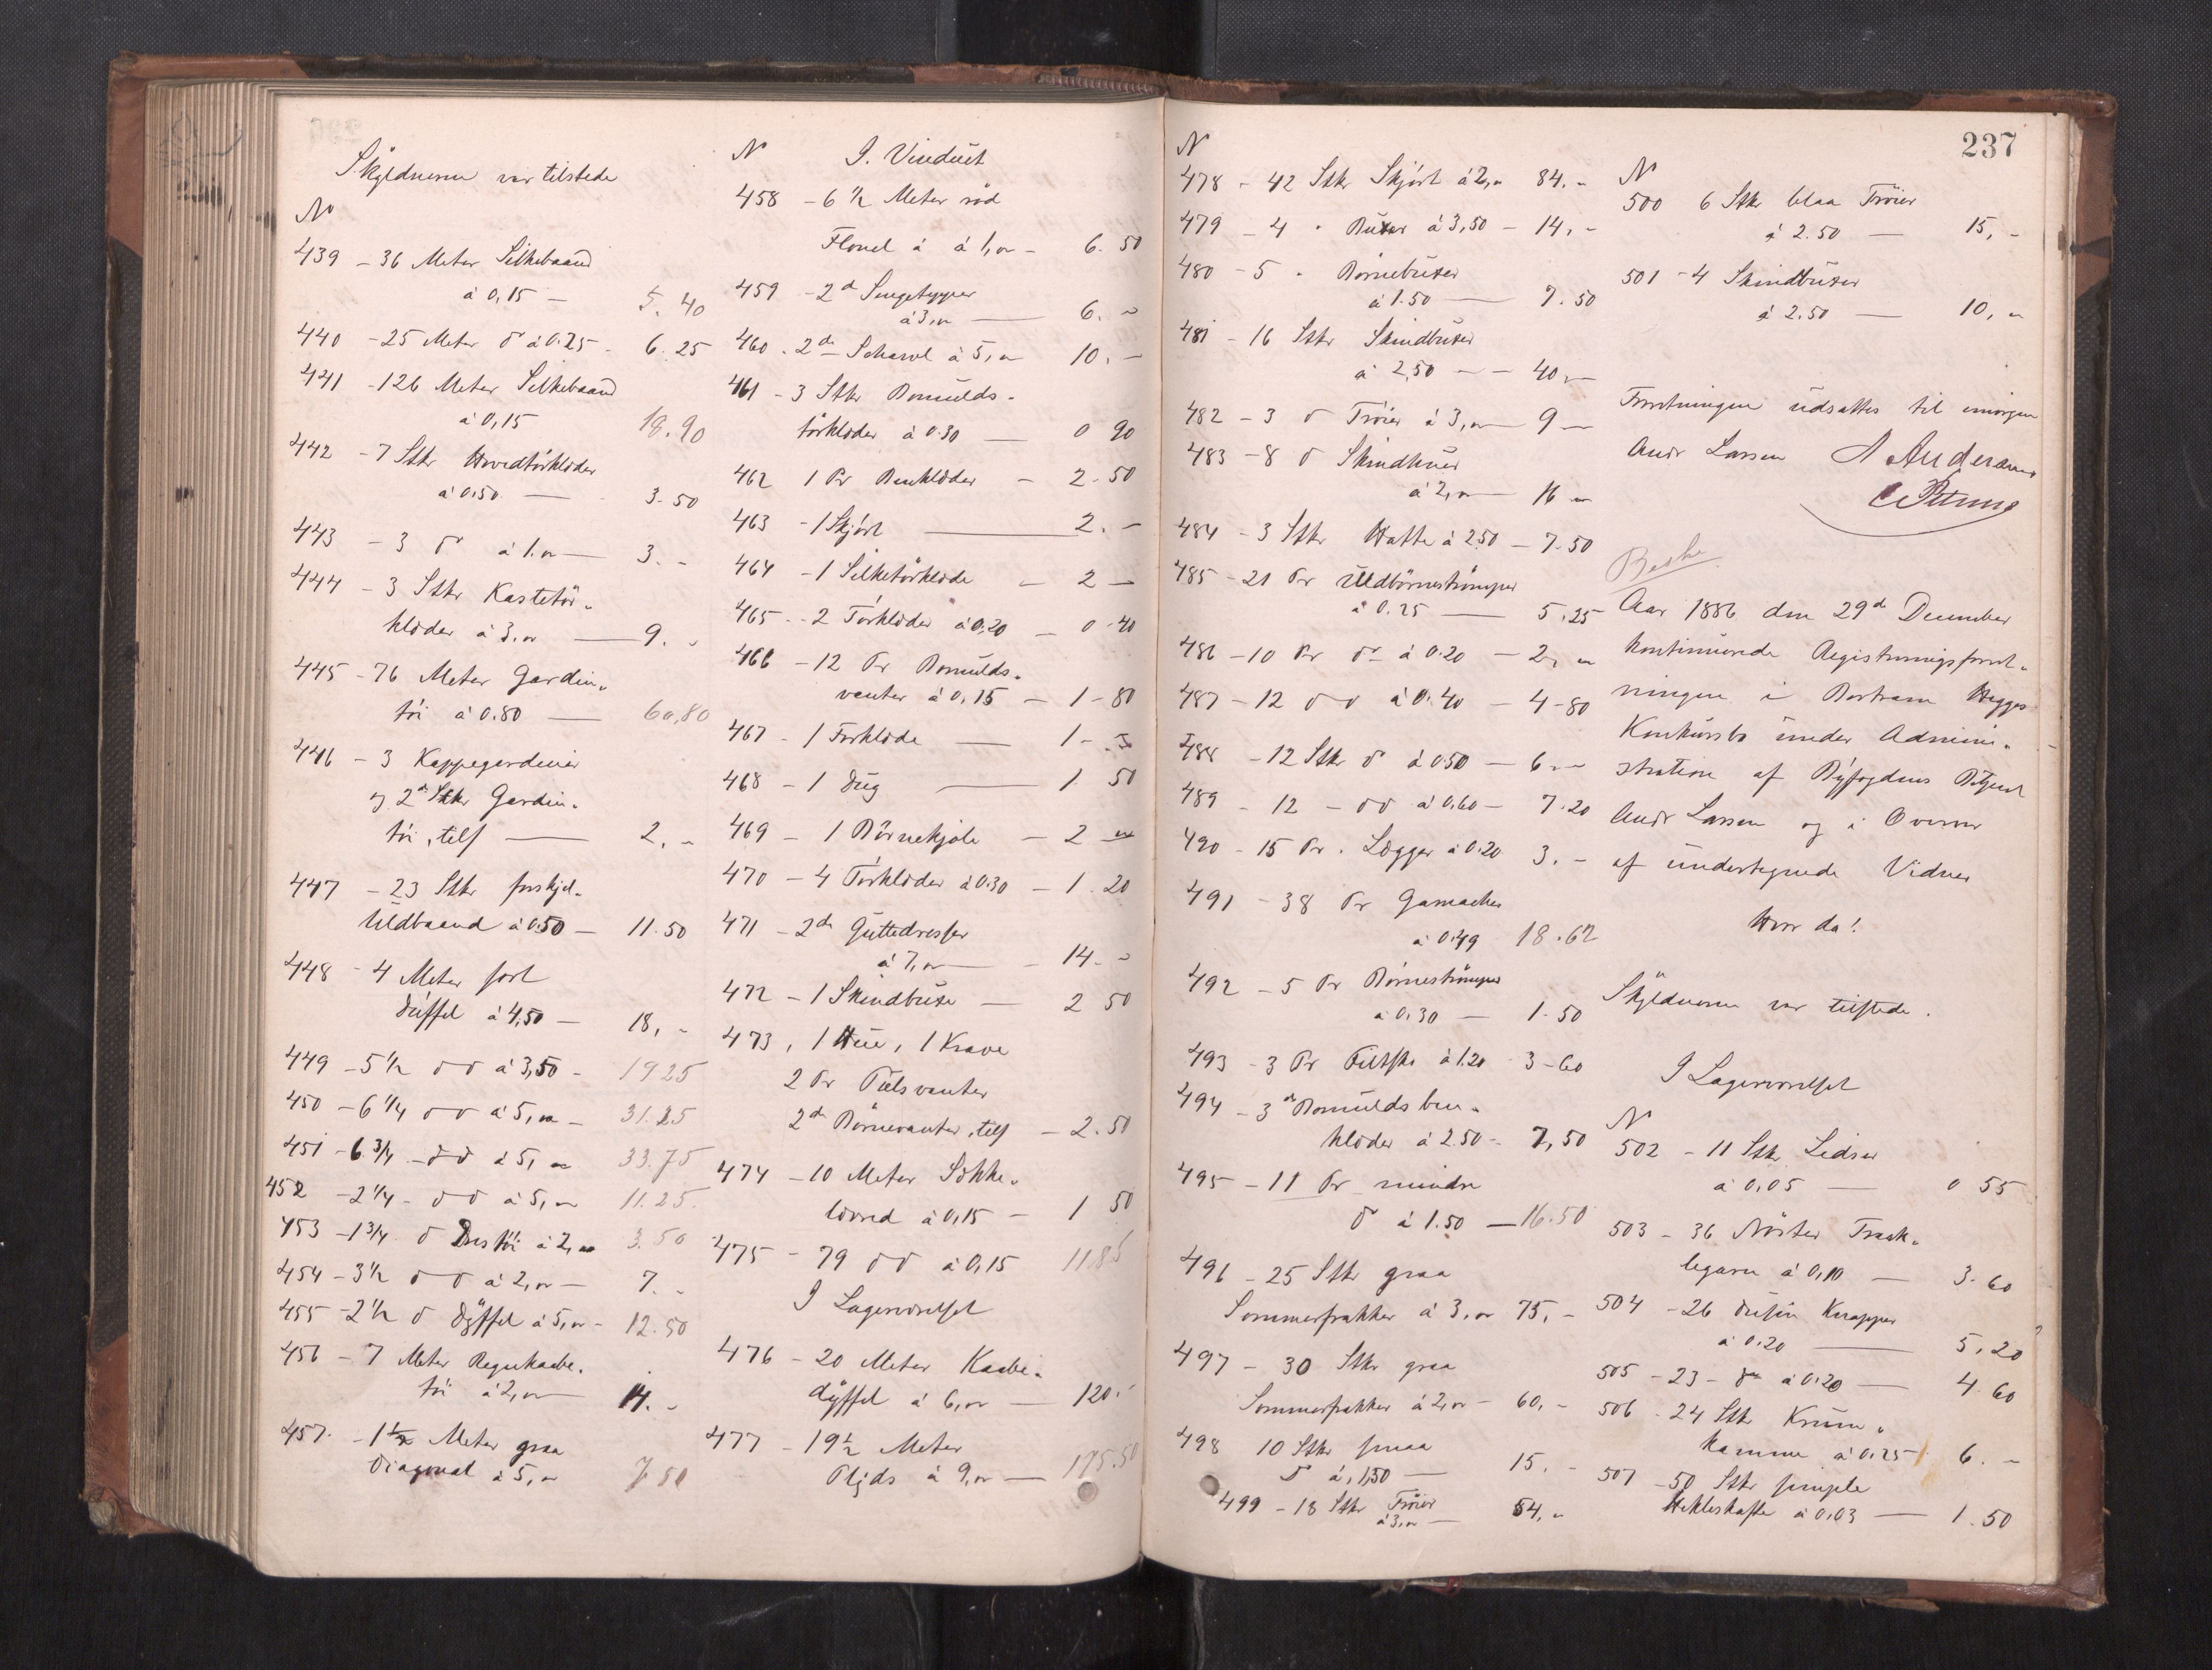 Skyldneren var tilstede
No
439 - 36 Meter Silkebaand
à 0,15 - 5.40
440 - 25 Meter do à 0.25 - 6.25
441 - 126 Meter Silkebaand
à 0,15 18.90
442 - 7 Stkr Hovedtörklæder
à 0.50 — 3.50
443 - 3 do à 1.„ — 3.-
444 - 3 Stkr Kastetör-
klæder à 3.„ — 9.-
445 - 76 Meter Gardin-
töi à 0.80 — 60,80
446 - 3 Kappegardiner
og 2de Stkr Gardin-
töi, tils — 2.-
447 - 23 Stkr forskjel.
Uldbaand à 0.50 — 11.50
448 - 4 Meter sort
Düffel à 4,50 — 18,-
449 - 5 1/2 do do à 3,50 - 19 25
450 - 6 1/4 do do à 5,„ - 31.25
451 - 6 3/4 - do do à 5,„ 33.75
452 - 2 1/4 - do do à 5,„ 11.25.
453 - 1 3/4 do Drestöi à 2,„ 3.50
454 - 3 1/2 do do à 2,„ — 7.-
455 - 2 1/2 do Dÿffel à 5,„ - 12.50
456 - 7 Meter Regnkaabe-
töi à 2,„ — 14.-
457 - 1 1/2 Meter graa
Diagonal à 5,„ 7 50
No I. Vinduet
458 - 6 1/2 Meter röd
Flonel à à 1,„ - 6.50
459 - 2de Sengetepper
à 3,„ — 6.-
460 - 2de Schavl à 5,„ 10.-
461 - 3 Stkr Bomulds-
törklæder à 0.30 — 0 90
462 1 Pr Benklæder - 2.50
463 - 1 Skjört — 2.-
464 - 1 Silketörklæde - 2 -
465 - 2 Törklæder à 0,20 - 0.40
466 - 12 Pr Bomulds-
vanter à 0,15 - 1-80
467 - 1 Forklæde — 1-
468 - 1 Dug — 1 50
469 - 1 Börnekjole - 2 „
470 - 4 Törklæder à 0.30 - 1.20
471 - 2de Guttedresser
à 7,„ — 14.-
472 - 1 Skindbuxe - 2 50
473, 1 Hue, 1 Krave
2 Pr Pulsvanter
2de Börnevanter, tils - 2.50
474 - 10 Meter Sökke-
lærred à 0,15 - 1 50
475 - 79 do do à 0,15 11.85
I Lagerværelset
476 - 20 Meter Kaabe-
dÿffel à 6,„ — 120.-
477 - 19 1/2 Meter
Pljds à 9,„ — 175.50
237
No
478 - 42 Stkr Skjört à 2,„ 84.-
479 - 4 " Buxer à 3,50 - 14,-
480 - 5 " Börnebuxer
à 1.50 — 7.50
481 - 16 Stkr Skindbuxer
à 2,50 - - 40,-
482 - 3 do Tröier à 3,„ — 9 -
483 - 8 do Skindhuer
à 2,„ — 16 „
484 - 3 Stkr Hatte à 2.50 - 7.50
485 - 21 Pr Uldbörneströmper
à 0.25 — 5.25
486 - 10 Pr do à 0.20 - 2, „
487 - 12 do do à 0.40 - 4-80
488 - 12 Stkr do à 0.50 - 6 „
489 - 12 - do do à 0,60 - 7.20
490 - 15 Pr. Lægger à 0.20 3.-
491 - 38 Pr Gamacher
à 0.49 18.62
492 - 5 Pr Börneströmper
à 0.30 - 1.50
493 - 3 Pr Filtsko à 1.20 3-60
494 - 3de Bomulds ben-
klæder à 2.50 - 7,50
495 - 11 Pr mindre
do à 1.50 — 16.50
496 - 25 Stkr graa
Sommerfrakker à 3,„ 75,-
497 - 30 Stkr graa
Sommerfrakker à 2,„ - 60,-
498 10 Stkr smaa
do à 1,50 — 15.-
499 - 18 Stkr Tröier
à 3,„ — 54,„
No
500 6 Stkr blaa Tröier
à 2.50 — 15,-
501 - 4 Skindbuxer
à 2.50 — 10,„
Forretningen udsattes til imorgen
Andr Larsen A Andersen
Aar 1886 den 29de December
kontinuerede Registreringsforret-
ningen i Bertram Wigges
Konkursbo under Admini-
stration af Byfogdens Betjent
Andr Larsen og i Overvær
af undertegnede Vidner
Hvor da!
Skyldneren var tilstede.
I Lagerværelset
No
502 - 11 Stkr Lidser
à 0,05 — 0 55
503 - 36 Nöster Trask-
legarn à 0,10 — 3.60
504 - 26 dusin Knapper
à 0.20 — 5,20
505 - 23 - do à 0.20 — 4.60
506 - 24 Stkr Krum-
kamme à 0.25 6.-
507 - 50 Stkr simple
Hekleskafte à 0,03 — 1.50